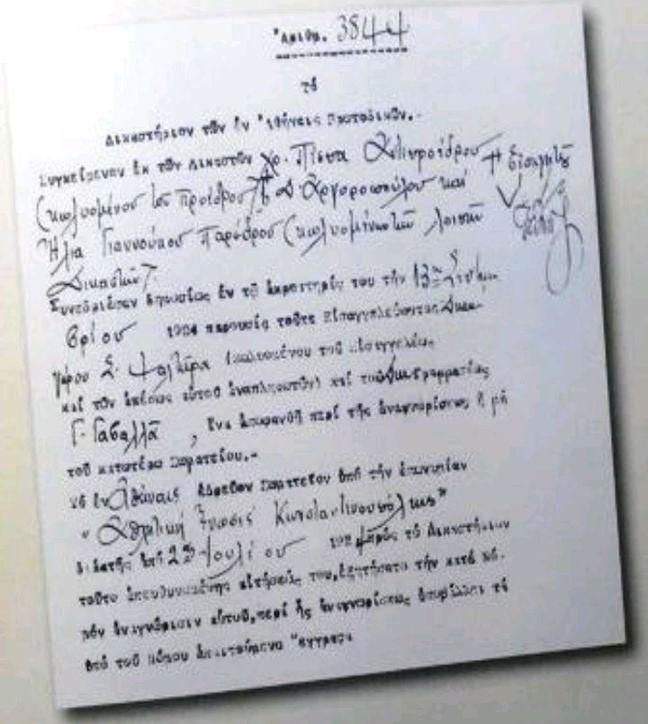 Ἀριθμ. 3844
τό
Δικαστήριον τῶν ἐν Ἀθήναις Πρωτοδικῶν.-
Συγκείμενον ἐκ τῶν Δικαστῶν Χρ. Πίσσα Ἀντιπροέδρου
(κωλυομένου τοῦ Προέδρου) Δ. Ἀργυροπούλου καί εἰσηγητοῦ
Ἠλία Γιαννούκου Παρέδρου (κωλυομένων τῶν λοιπῶν
Δικαστῶν).
Συνεδριάσαν δημοσίως ἐν τῷ ἀκροατηρίῳ του τήν 13ην Σεπτεμ
βρίου 1924 παρουσίᾳ τοῦτε Εἰσαγγελεύοντος Δικη
γόρου Σ. Ψαλτήρα (κωλυομένου τοῦ Εἰσαγγελέως
καί τῶν ἀμέσως αὐτόν ἀναπληρωτῶν) καί τοῦ Δικ. Γραμματέως
Γ. Γαβαλλᾶ, ἵνα ἀποφανθῇ περί τῆς ἀναγνωρίσεως ἤ μή
τοῦ κατωτέρω Σωματείου.-
Τό ἐν Ἀθήναις ἑδρεῦον Σωματεῖον ὑπό τήν ἐπωνυμίαν
"Ἀθλητική Ἕνωσις Κωνσταντινουπόλεως"
διά τῆς ἀπό 29 Ἰουλίου πρός τό Δικαστήριον
τοῦτο ἀπευθυνομένης αἰτήσεώς του, ἐξῃτήσατο τήν κατά νό-
μον ἀναγνώρισιν αὐτοῦ, περί ἧς ἀναγνωρίσεως ὑποβάλλει τά
ὑπό τοῦ Νόμου ἀπαιτούμενα ἔγγραφα